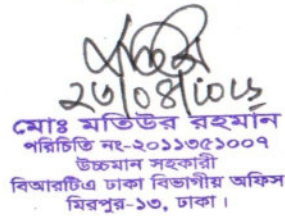 ২৩/০৪/২০২৪
মোঃ মতিউর রহমান
পরিচিতি নং-২০১১৩৫১০০৭
উচ্চমান সহকারী
বিআরটিএ ঢাকা বিভাগীয় অফিস
মিরপুর-১৩, ঢাকা।